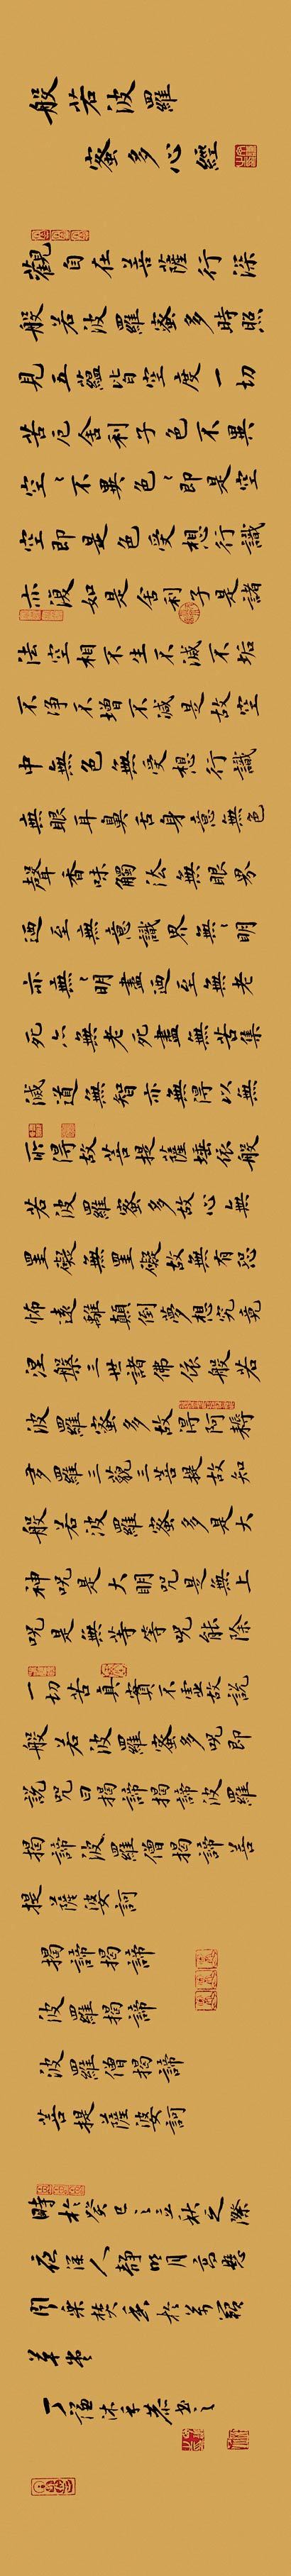 般若波羅
蜜多心經
觀自在菩薩行深
般若波羅蜜多時照
見五蘊皆空度一切
苦厄舍利子色不異
空〻不異色〻即是空
空即是色受想行識
亦復如是舍利子是諸
法空相不生不滅不垢
不淨不增不減是故空
中無色無受想行識
無眼耳鼻舌身意無色
聲香味觸法無眼界
廼至無意識界無〻明
亦無〻明盡廼至無老
死亦無老死盡無苦集
滅道無智亦無得以無
所得故菩提薩埵依般
若波羅蜜多故心無
罣礙無罣礙故無有恐
怖遠離顛倒夢想究竟
涅盤三世諸佛依般若
波羅蜜多故得阿耨
多羅三藐三菩提故知
般若波羅蜜多是大
神咒是大明咒是無上
咒是無等等咒能除
一切苦真實不虛故說
般若波羅蜜多咒即
說咒曰揭諦揭諦波羅
揭諦波羅僧揭諦菩
提薩婆訶
揭諦揭諦
波羅揭諦
波羅僧揭諦
菩提薩婆訶
時於癸巳〻立秋之際
夜深人靜明月高懸
焚香於
草堂
沐手恭書之